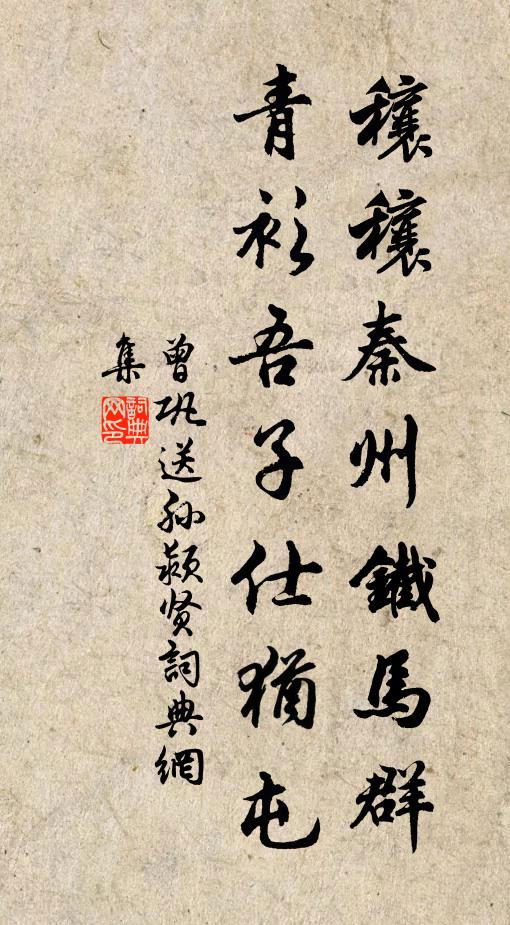 穰穰秦州鐵馬群
青衫吾子仕猶屯
曾巩送孙颖贤詞典網
集
詞典
网印